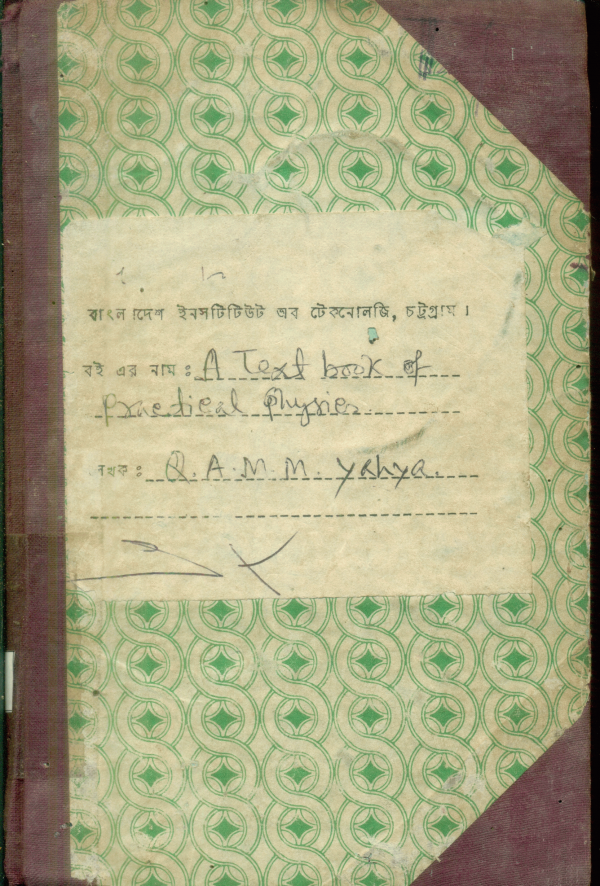 বাংলাদেশ ইনসটিটিউট অব টেকনোলজি, চট্টগ্রাম।
বই এর নাম : A Text book of
Practical Physics
লেখক : Q. A. M. M. Yahya.